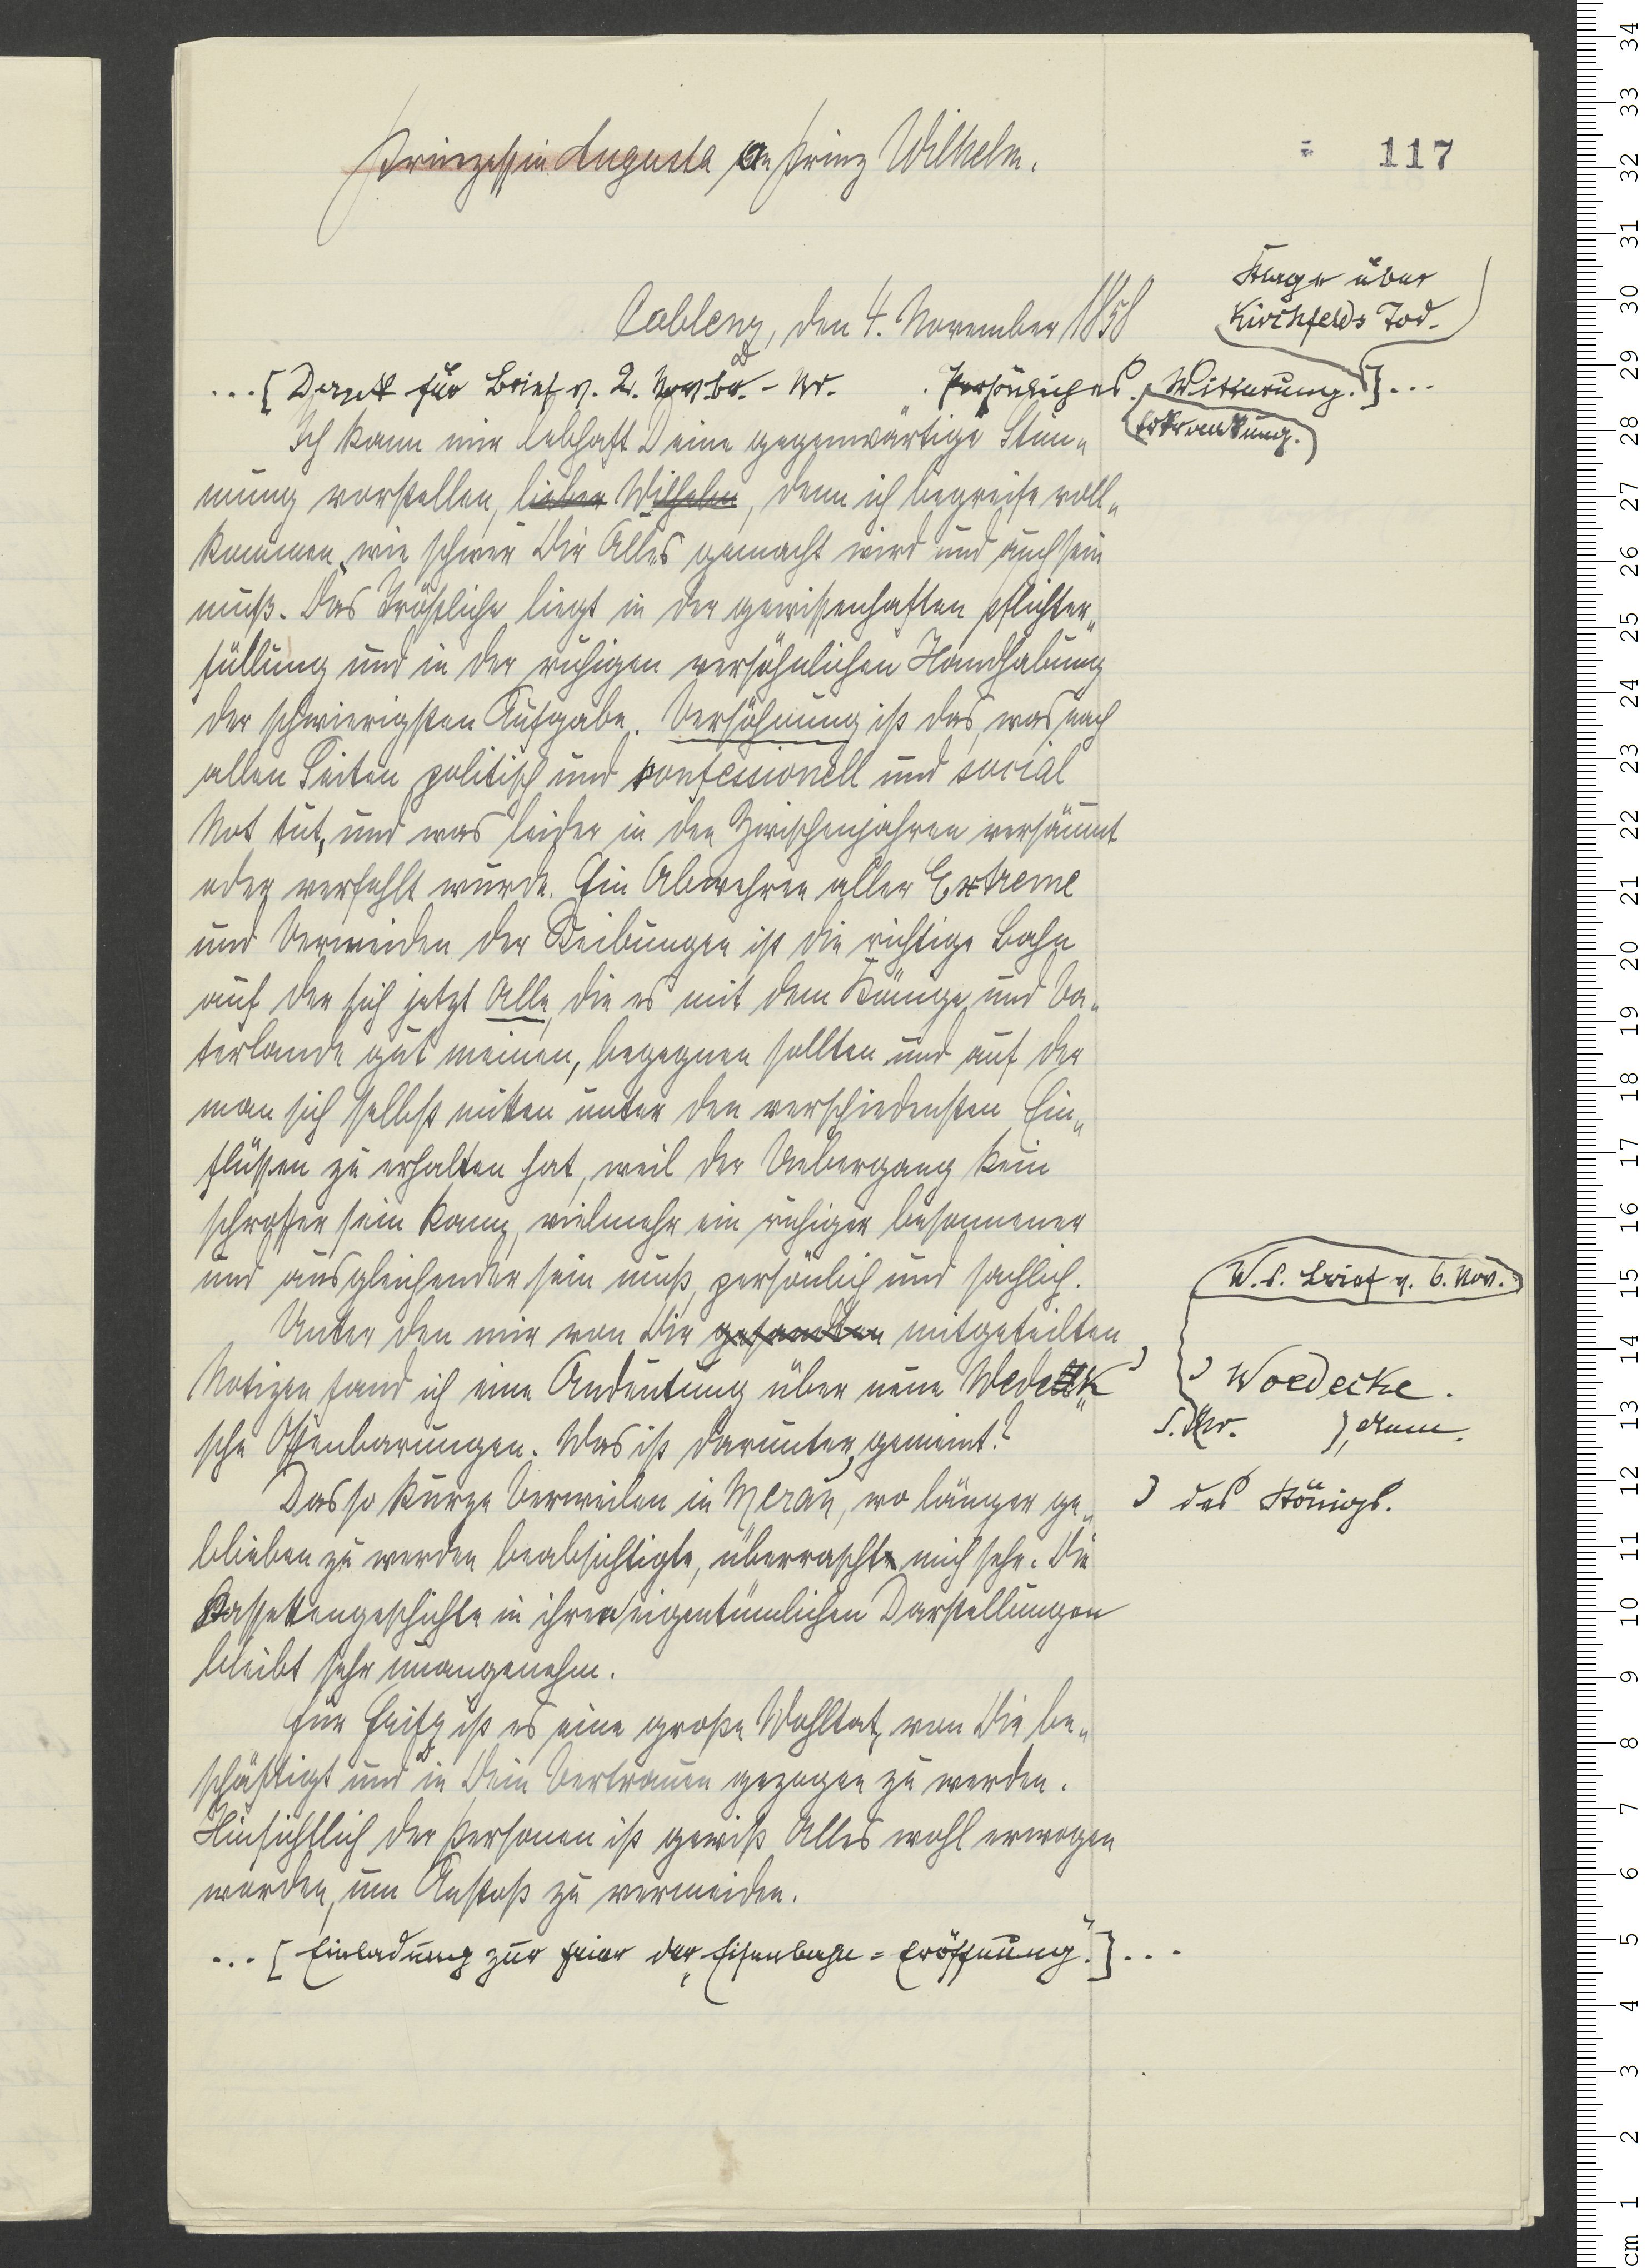 Prinzessin Augusta an Prinz Wilhelm.
117
Coblenz, den 4. November 1858
Klage über
Kirchfelds Tod.
...[Dank für Brief v. 2. Novbr. - Nr. . Persönliches. Witterung.]...
Erkrankung.
Ich kann mir lebhaft Deine gegenwärtige Stim„
mung vorstellen, lieber Wilhelm, denn ich begreife voll„
kommen, wie schwer Dir Alles gemacht wird und auch sein
muß. Das Tröstliche liegt in der gewissenhaften Pflichter„
füllung und in der ruhigen versöhnlichen Handhabung
der schwierigsten Aufgabe. Versöhnung ist das, was nach
allen Seiten politisch und konfessionell und social
Not tut, und was leider in den Zwischenjahren versäumt
oder verfehlt wurde. Ein Abwehren aller Extreme
und Vermeiden der Reibungen ist die richtige Bahn
auf der sich jetzt Alle, die es mit dem Könige und Va„
terlande gut meinen, begegnen sollten und auf der
man sich selbst mitten unter den verschiedensten Ein„
flüssen zu erhalten hat, weil der Uebergang kein
schroffer sein kann, vielmehr ein ruhiger besonnener
und ausgleichender sein muß, persönlich und sachlich.
W.s. Brief v. 6. Nov.
Unter den mir von Dir gesandten mitgeteilten
Notizen fand ich eine Andeutung über neue Wedeck„
) Woedecke.
sche Offenbarungen. Was ist darunter gemeint?
s. Nr. ), Anm.
Das so kurze Verweilen in Meran, wo länger ge„
) des Königs.
blieben zu werden beabsichtigte, überrascht mich sehr. Die
Kassettengeschichte in ihren eigentümlichen Darstellungen
bleibt sehr unangenehm.
Für Fritz ist es eine große Wohltat, von Dir be„
schäftigt und in Dein Vertrauen gezogen zu werden.
Hinsichtlich der Personen ist gewiß Alles wohl erwogen
worden, um Anstoß zu vermeiden.
...[Einladung zur Feier der Eisenbahn=Eröffnung.]...